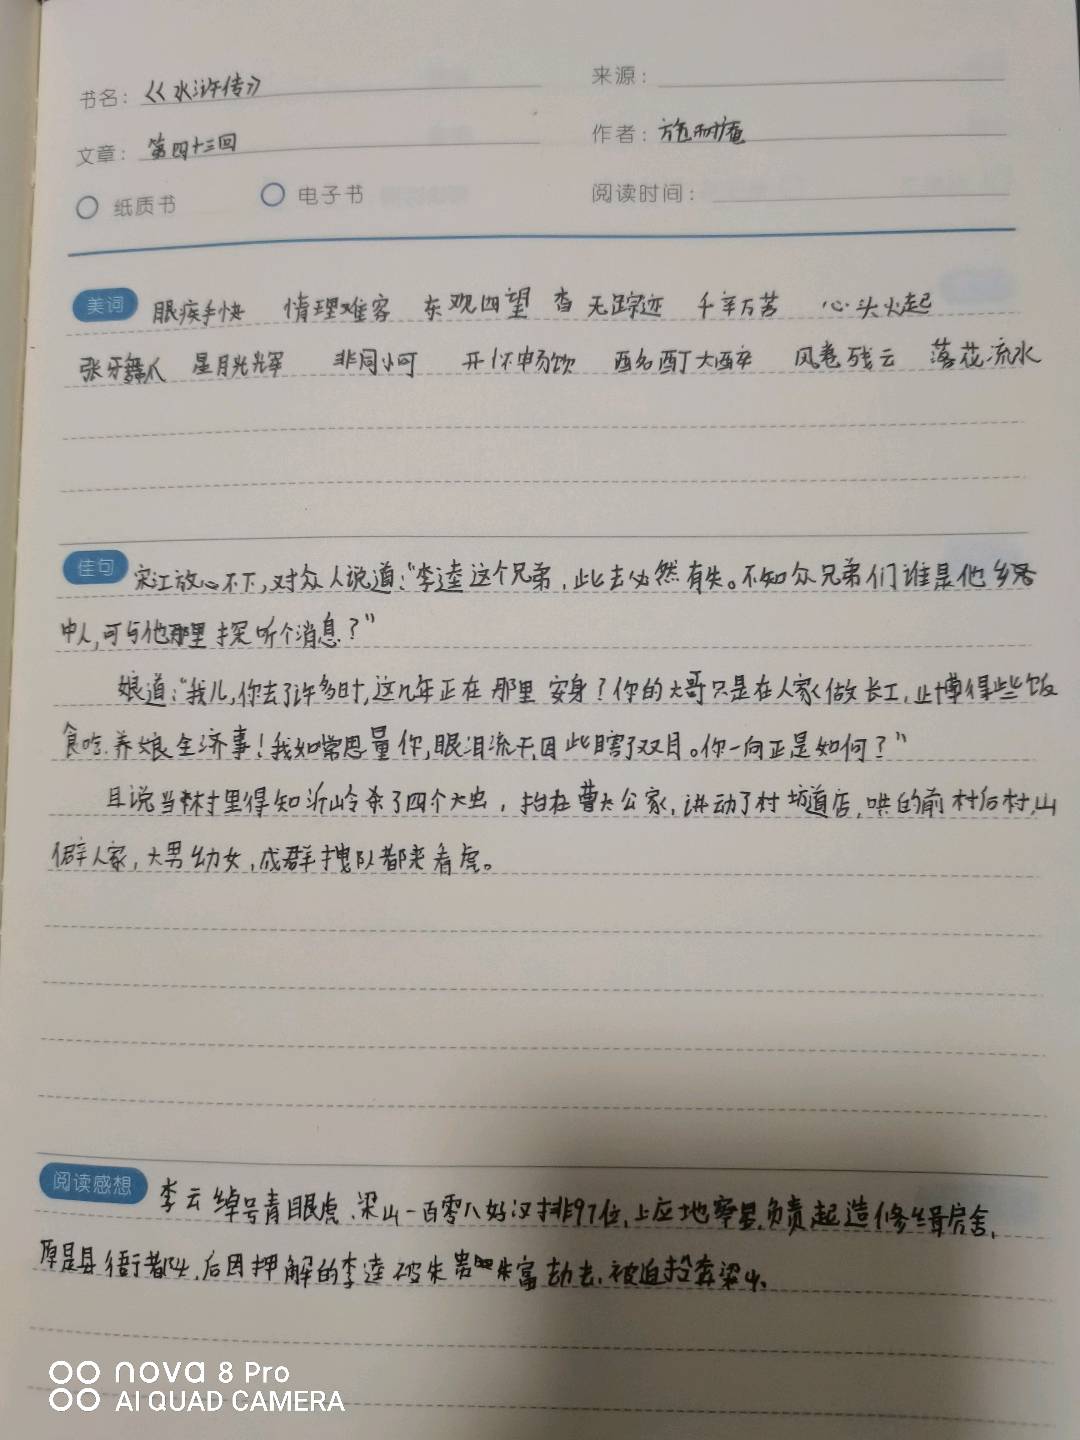 书名：《水浒传》
来源：
文章：第四十三回
作者：施耐庵
纸质书 电子书 阅读时间：
美词 眼疾手快 情理难容 东观西望 杳无踪迹 千辛万苦 心头火起
张牙舞爪 星月光辉 非同小可 开怀畅饮 酩酊大醉 风卷残云 落花流水
佳句 宋江放心不下，对众人说道：“李逵这个兄弟，此去必然有失。不知众兄弟们谁是他乡
中人，可与他那里探听个消息？”
娘道：“我儿，你去了许多时，这几年正在那里安身？你的大哥只是在人家做长工，止博得些饭
食吃，养娘全济事！我如常思量你，眼泪流干，因此瞎了双目。你一向正是如何？”
且说当村里得知沂岭杀了四个大虫，抬在曹大公家，讲动了村坊道店，哄的前村后村，山
僻人家，大男幼女，成群拽队都来看虎。
阅读感想 李云绰号青眼虎，梁山一百零八好汉排97位，上应地察星，负责起造修缉房舍，
原是县衙都头，后因押解的李逵被朱贵朱富劫去，被迫投奔梁山。
nova 8 Pro
AI QUAD CAMERA